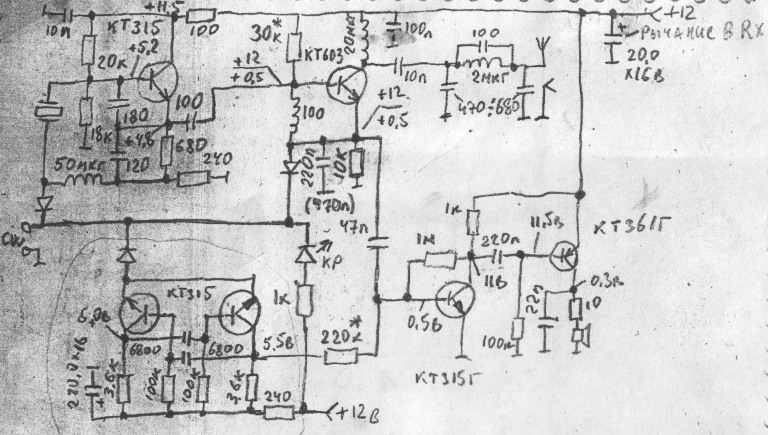 +11.5
+12
10п
КТ315
100
30к*
20мкг
100п
100
РЫЧАНИЕ В RX
КТ603
20,0
×16В
20к
+5,2
+12
+0,5
10п
2мкг
180
100
100
+12
+0,5
470÷680
18к
+4,8
680
50мкг
120
240
220п
10к
(470п)
47п
1к
КТ361Г
CW
1м
220п
11,5В
КР
КТ315
11В
0,3В
1к
0,5В
22п
10
5,5В
220к*
6800
6800
100к
КТ315Г
3,6к
100к
100к
3,6к
240
+12В